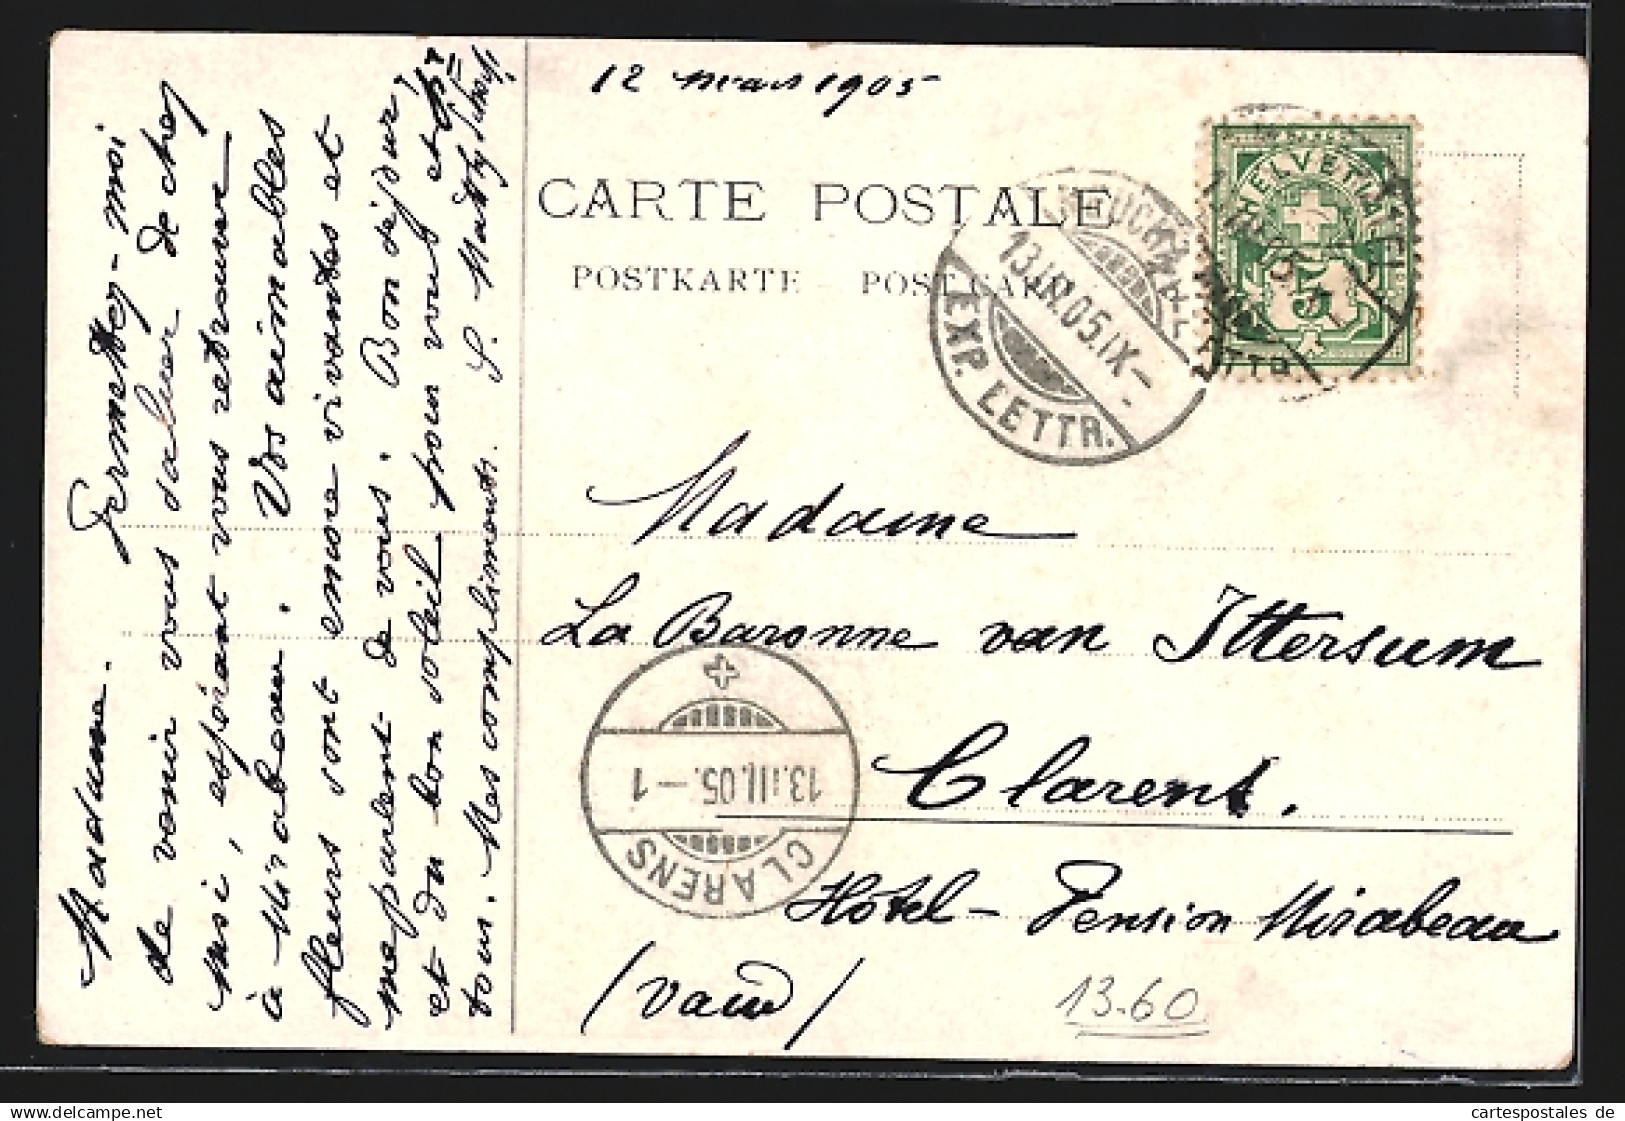 12 mars 1905
CARTE POSTALE
POSTKARTE - POSTCARD
HELVETIA
5
13.III.05.IX-
EXP. LETTR.
Madame
La Baronne van Ittersum
Clarens.
Hôtel-Pension Mirabeau
(Vaud)
13.60
13.III.05.-1
CLARENS
Madame. Permettez-moi
de venir vous saluer de chez
moi, espérant vous retrouver
à Mirabeau. Vos aimables
fleurs sont encore vivantes et
me parlent de vous. Bon séjour!
et du bon soleil pour vous et
tous. Mes compliments. S.
cartespostales de